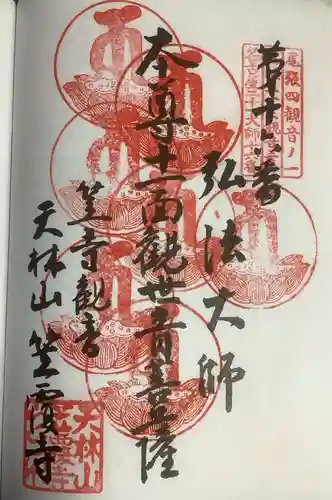 第十六番
尾張四観音ノ一
弘法大師
本尊十一面観世音菩薩
笠寺観音
天林山 笠覆寺
天林山
笠覆寺